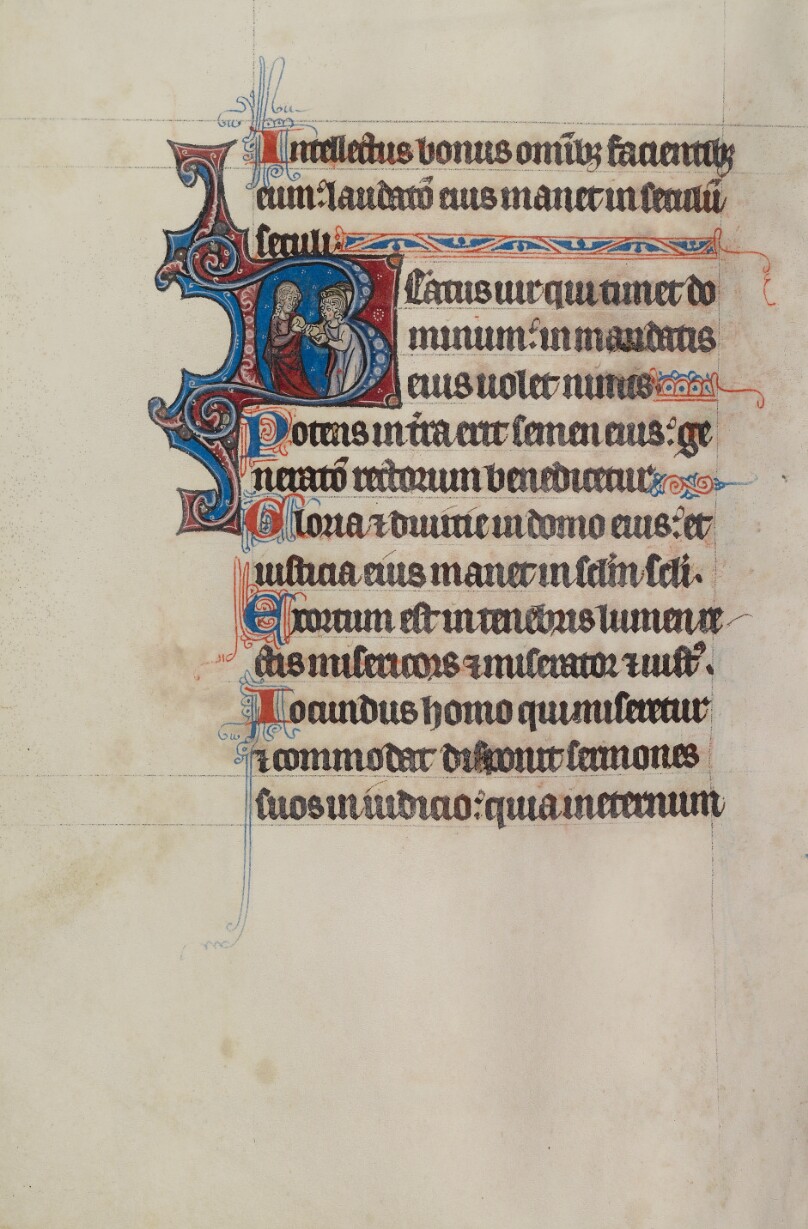 Intellectus bonus om̄ibꝫ facientibꝫ
eum: laudatō eius manet in seculū
seculi.
BEatus uir qui timet do
minum: in mandatis
eius uolet nimis
Potens in t̄ra erit semen eius: ge
neratō rectorum benedicetur
Gloria ⁊ diuitie in domo eius: et
iusticia eius manet in sclm̄ scli.
Exortum est in tenebris lumen re
ctis misericors ⁊ miserator ⁊ iustꝰ.
Iocundus homo qui miseretur
⁊ commodat disponit sermones
suos in iudicio: quia in eternum